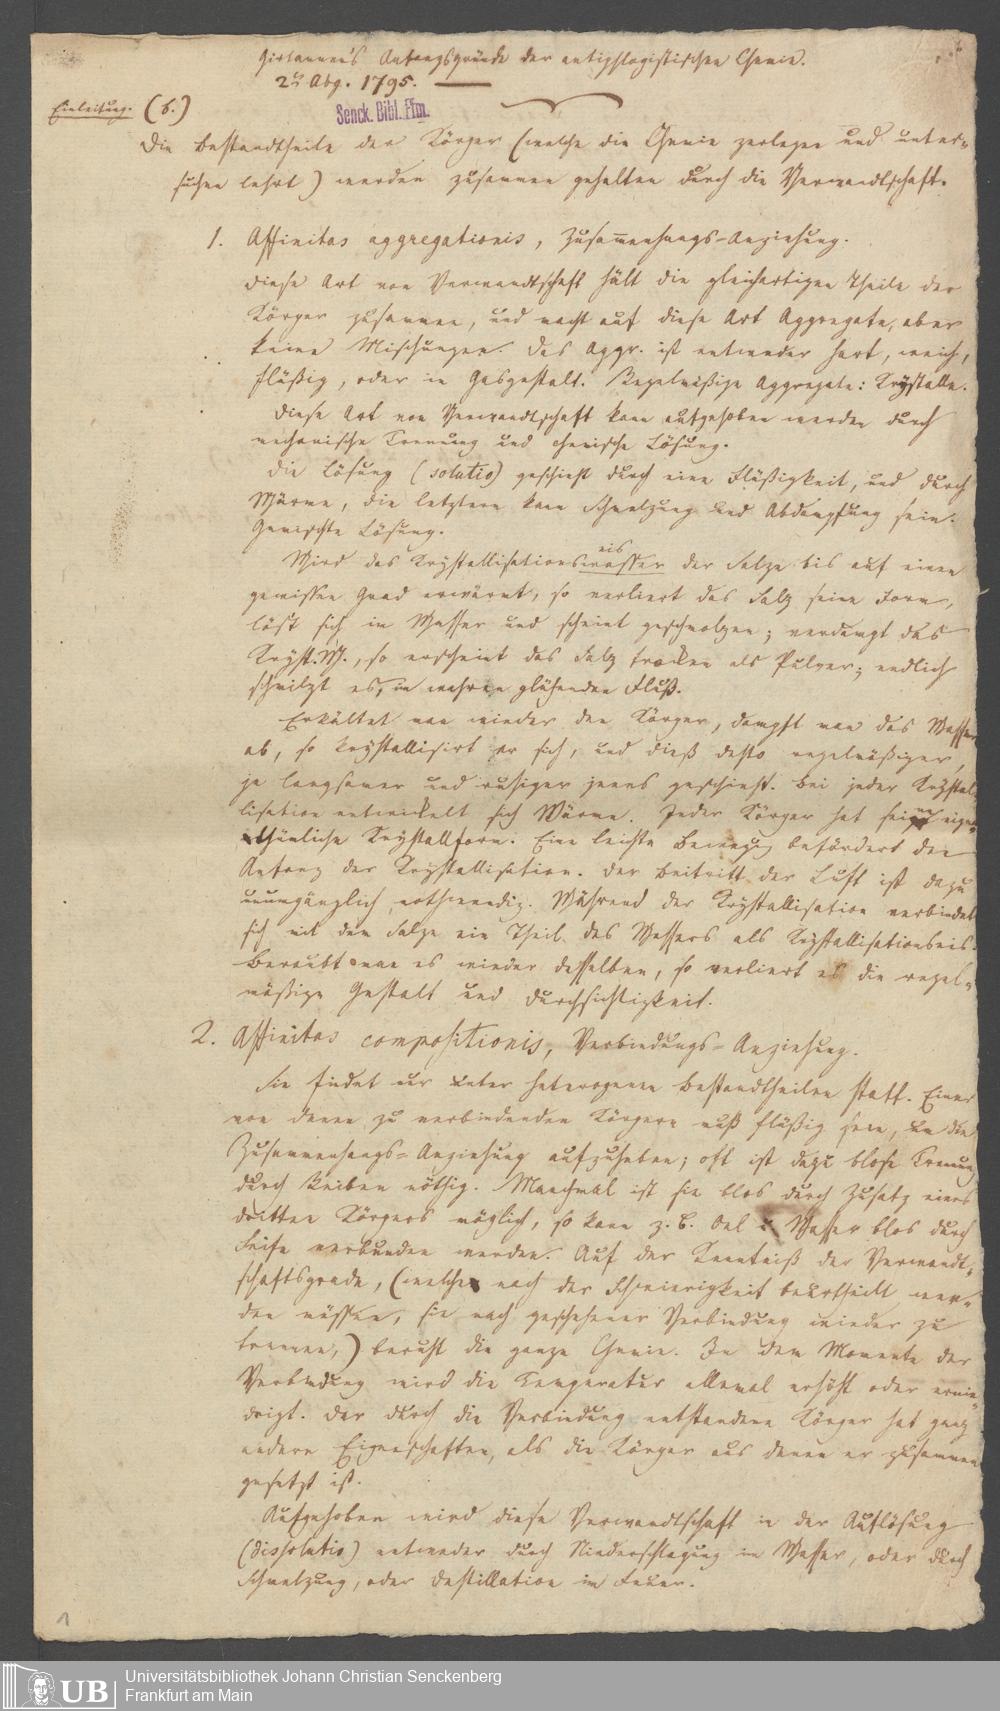 Girtanner's Anfangsgründe der antiphlogistischen Chemie.
2te Ausg. 1795.
Senck. Bibl. Ffm.
Einleitung. (S.)
Die Bestandtheile der Körper (welche die Chemie zerlegen und unter-
suchen lehrt) werden zusammen gehalten durch die Verwandtschaft.
1. Affinitas aggregationis, Zusam̅enhangs-Anziehung.
Diese Art von Verwandtschaft hält die gleichartigen Theile der
Körper zusammen, und macht auf diese Art Aggregate, aber
keine Mischungen. Das Aggr. ist entweder hart, weich,
flüßig, oder in Gasgestalt. Regelmäßige Aggregate: Krystalle.
Diese Art von Verwandtschaft kann aufgehoben werden durch
mechanische Trennung und chemische Lösung.
Die Lösung (solutio) geschieht durch eine Flüßigkeit, und durch
Wärme, die letztere kann Schmelzung und Abdampfung sein.
Gemischte Lösung.
eis
Wird das Krystallisationswasser der Salze bis auf einen
gewissen Grad erwärmt, so verliert das Salz seine Form,
löst sich in Wasser und scheint geschmolzen; verdampft das
Kryst. W., so erscheint das Salz trocken als Pulver; endlich
schmilzt es, in wahren glühenden Fluß.
Erkältet man wieder den Körper, dampft man das Wasser
ab, so krystallisirt er sich, und dieß desto regelmäßiger,
je langsamer und ruhiger jenes geschieht. Bei jeder Krystal-
lisation entwickelt sich Wärme. Jeder Körper hat seine eigen-
thümliche Krystallform. Eine leichte Bewegung befördert den
Anfang der Krystallisation. Der Beitritt der Luft ist dazu
unumgänglich nothwendig. Während der Krystallisation verbindet
sich mit dem Salze ein Theil des Wassers als Krystallisationseis.
Beraubt man es wieder desselben, so verliert es die regel-
mäßige Gestalt und Durchsichtigkeit.
2. Affinitas compositionis, Verbindungs-Anziehung.
Sie findet nur unter heterogenen Bestandtheilen statt. Einer
von denen zu verbindenden Körpern muß flüßig sein, um die
Zusammenhangs-Anziehung aufzuheben; oft ist dazu blose Trennung
durch Reiben nöthig. Manchmal ist sie blos durch Zusatz eines
dritten Körpers möglich, so kann z. B. Oel u. Wasser blos durch
Seife verbunden werden. Auf der Kenntniß der Verwandt-
schaftsgrade, (welche nach der Schwierigkeit beurtheilt wer-
den müssen, sie nach geschehener Verbindung wieder zu
trennen,) beruht die ganze Chemie. In dem Momente der
Verbindung wird die Temperatur allemal erhöht oder ernie-
drigt. Der durch die Verbindung entstandene Körper hat ganz
andere Eigenschaften, als die Körper aus denen er zusammen
gesetzt ist.
Aufgehoben wird diese Verwandtschaft in der Auflösung
(dissolutio) entweder durch Niederschlagung in Wasser, oder durch
Schmelzung, oder Destillation im Feuer.
1
UB
Universitätsbibliothek Johann Christian Senckenberg
Frankfurt am Main